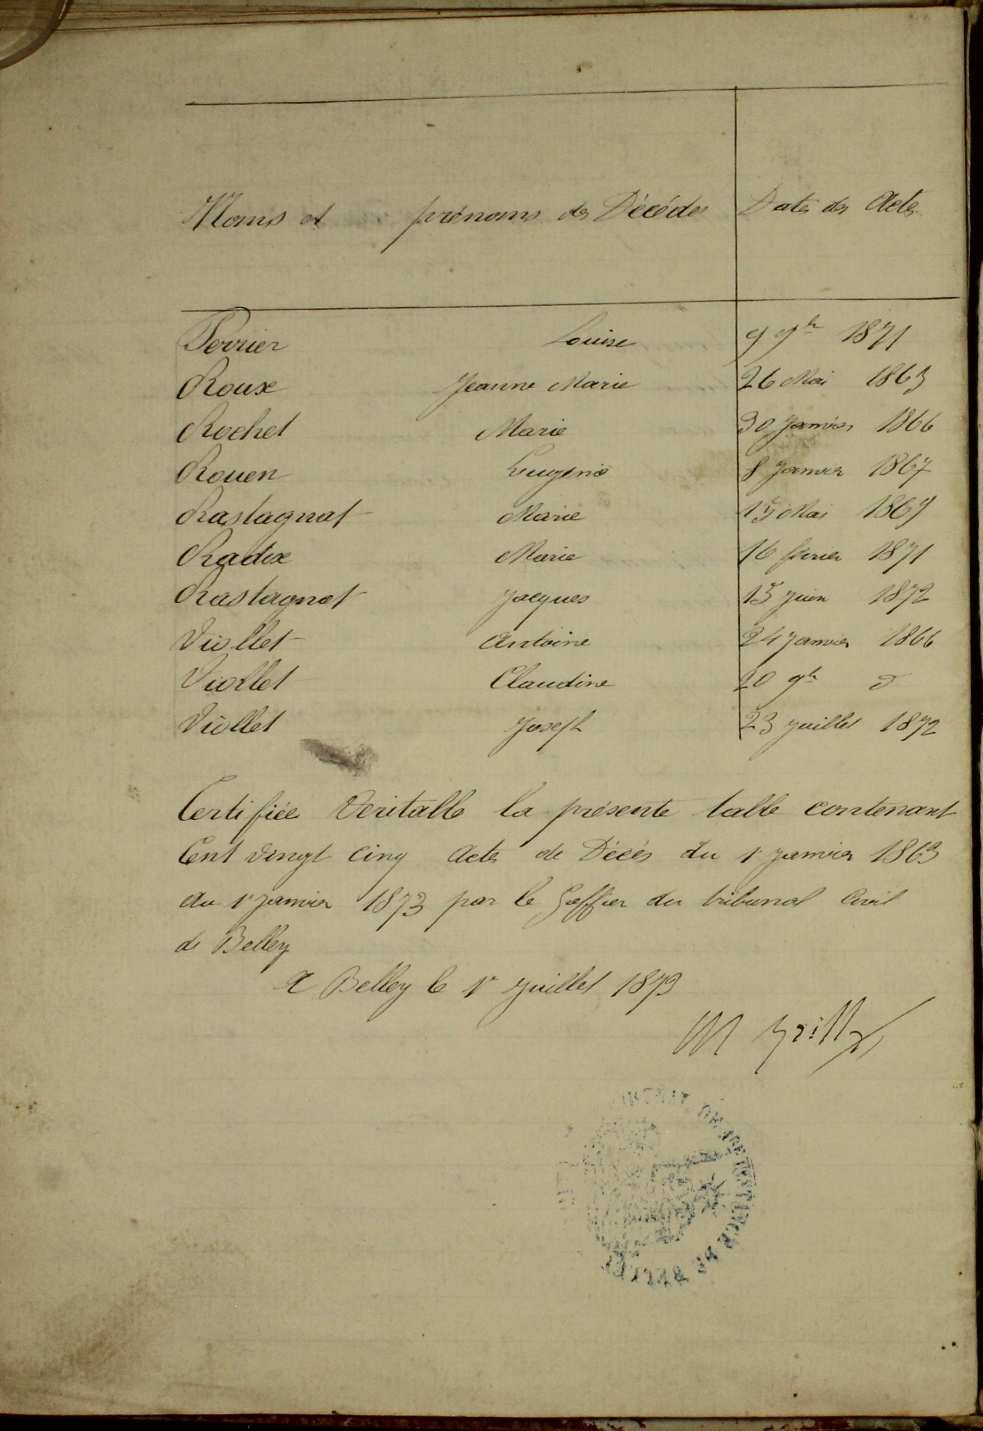 Noms et prénoms des Décédés Dates des Actes
Perrier Louise 9 9bre 1871
Roux Jeanne Marie 26 Mai 1863
Rochet Marie 30 Janvier 1866
Rouen Eugénie 8 Janvier 1867
Rastagnat Marie 15 Mai 1867
Radix Marie 16 février 1871
Rastagnat Jacques 15 Juin 1872
Viollet Antoine 24 Janvier 1866
Viollet Claudine 20 9bre d°
Viollet Joseph 23 Juillet 1872
Certifiée Véritable la présente table contenant
Cent vingt cinq Actes de Décès du 1r Janvier 1863
au 1r Janvier 1873 par le Greffier du tribunal Civil
de Belley
A Belley le 1r Juillet 1873
DE BELLEY